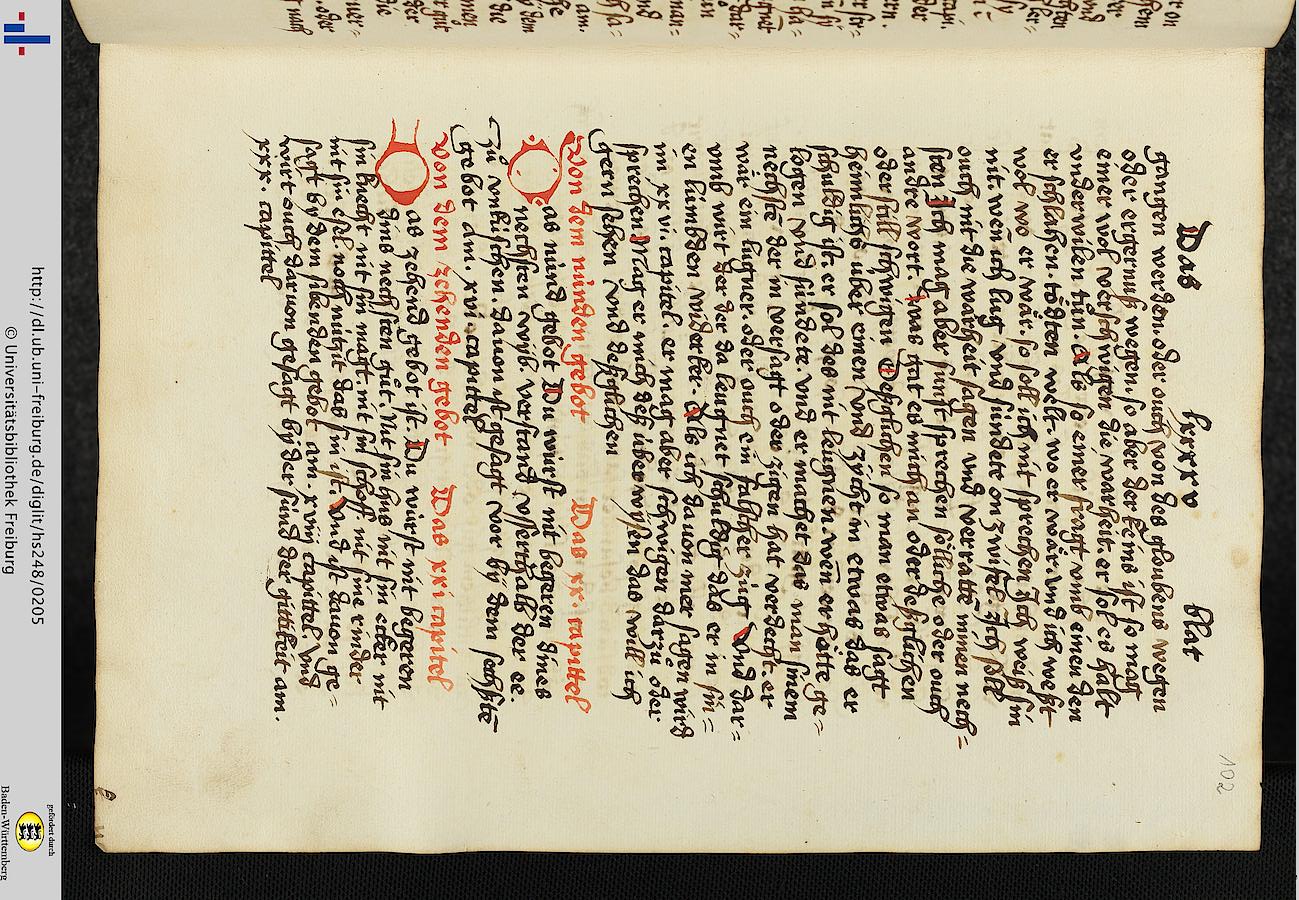 Das lxxxv blat
gangen werden. oder ouch von des glouben wegen
oder ergernuß wegen. so aber der keins ist so mag
einer wol verschwigen die warheit. er sol es halt
underwilen tůn. Als so einer fragt umb einen den
er schlahen. tödten welt. wo er wär. und ich weist
wol wo er wär. so soll ich nit sprechen Ich weiß sin
nit. wen̄ ich lug und sundete on zwifel. Ich sol
ouch nit die warheit sagen und verratte minen nech=
sten Ich mag aber sunst sprechen sölliche oder ouch
andre wort. was gat es mich an oder desglichen
oder still schwigen Desglichen so man etwas sagt
heimlichs uber einen und zycht in etwas das er
schuldig ist. er sol des nit leugnen wen̄ er hette ge=
logen und sundete. und er machet das man sinem
nechstē der in versagt oder zigen hat verdecht. er
wär ein lugner. oder ouch ein falscher zug Und dar=
umb wirt der der da leugnet schuldig das er in sin=
en lümbden widerker. Als ich dauon mer sagen wird
im xxvi. capitel. er mag aber schwigen darzů oder
sprechen Mag er mich deß uberwysen das will ich
gern sehen und desglichen
Von dem nünden gebot Das xx. capittel
Das nünd gebot Du wirst nit begeren dines
nechsten wyb. Verstand usserthalb der ee.
zů unküschen. dauon ist gesagt vor by dem sechstē
gebot am. xvi. capitel
Von dem zehenden gebot Das xxi capitel
Das zehend gebot ist. Du wurst nit begeren
dins nechsten gůt. Nit sin hus nit sin acker nit
sin knecht nit sin magt. nit sin schoff. nit sine rinder
nit sin esel. noch nützit das sin ist. Und ist dauon ge=
sagt by dem sibenden gebot am. xviij capittel. Und
wirt ouch daruon gesagt by der sünd der gittikeit am.
xxx. capittel
102
http://dl.ub.uni-freiburg.de/diglit/hs248/0205
© Universitätsbibliothek Freiburg
gefördert durch
Baden-Württemberg